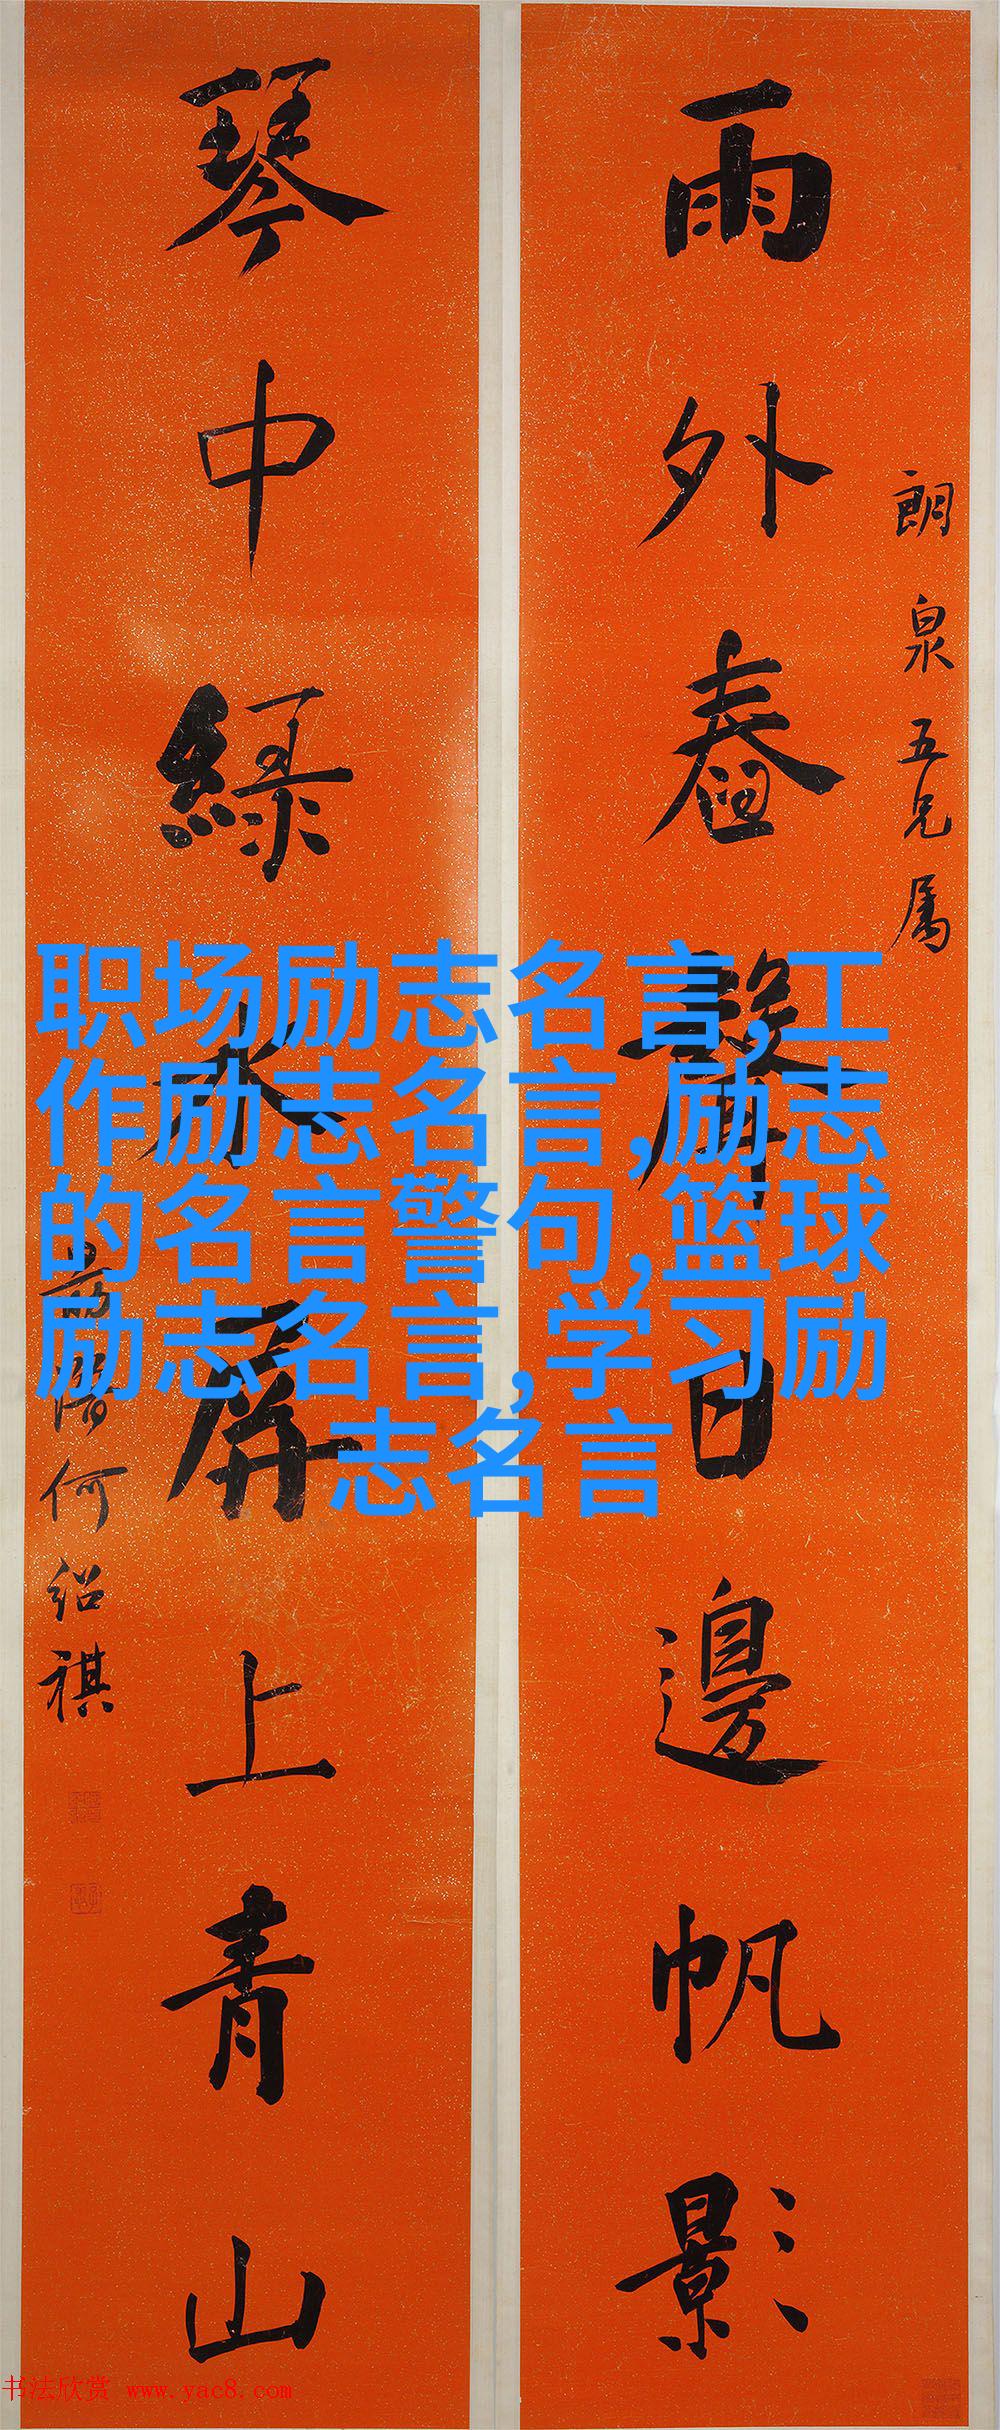 朗泉五兄属
雨外舂聲日邊帆影
琴中綠水屏上青山
勗潛何紹祺
职场励志名言,工
作励志名言,励志
的名言警句,篮球
励志名言,学习励
志名言
书法欣赏 www.yac8.com